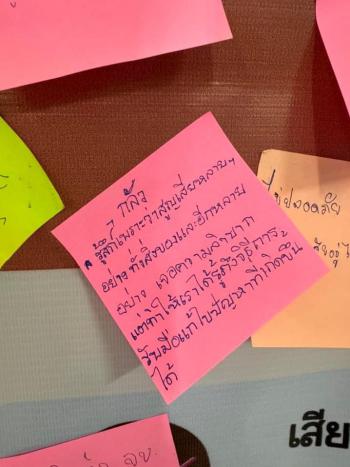 "กลัว"
รู้สึกเพราะว่าสูญเสียหลายๆ
อย่าง ทั้งสิ่งของและอีกหลาย
อย่าง เจอความลำบาก
แต่ทำให้เราได้รู้ถึงวิธีการจะ
รับมือแก้ไขปัญหาที่เกิดขึ้น
ได้
ไม่ปลอดภัย
เสีย